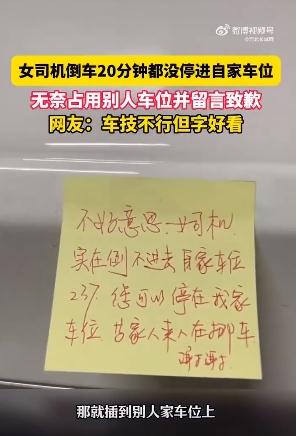 微博视频号
女司机倒车20分钟都没停进自家车位
无奈占用别人车位并留言致歉
网友：车技不行但字好看
不好意思.女司机
实在倒不进去自家车位
237. 您可以停在我家
车位 等家人来人在挪车
谢了谢了
那就插到别人家车位上